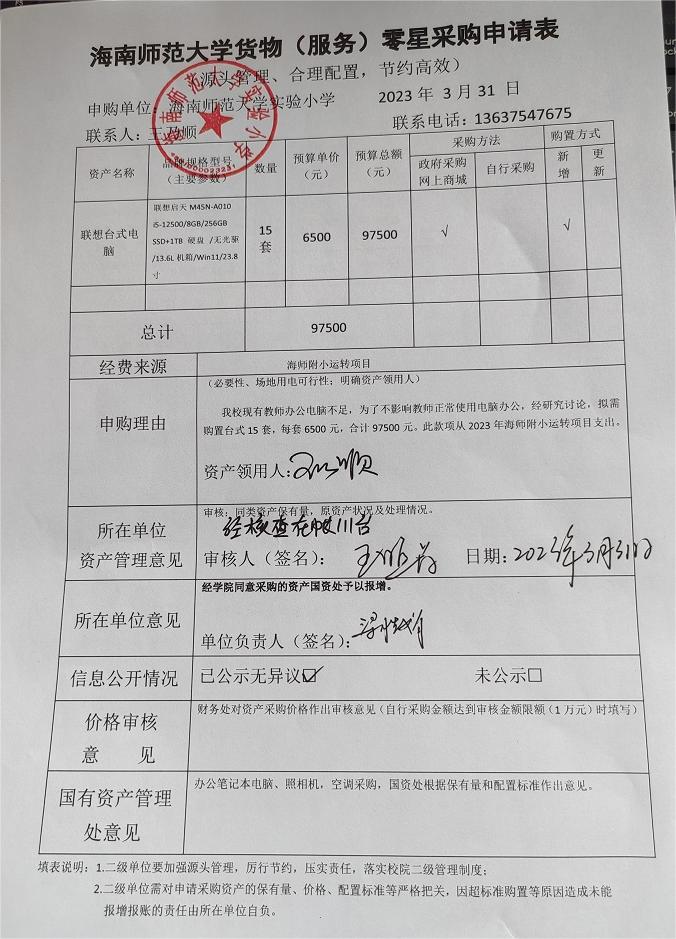 海南师范大学货物（服务）零星采购申请表
（源头管理、合理配置，节约高效）
申购单位：海南师范大学实验小学 2023 年 3 月 31 日
联系人：王 顺 联系电话：13637547675
资产名称 品牌规格型号（主要参数） 数量 预算单价（元） 预算总额（元） 采购方法 购置方式
政府采购网上商城 自行采购 新增 更新
联想台式电脑 联想启天 M45N-A010 i5-12500/8GB/256GB SSD+1TB 硬盘 /无光驱 /13.6L 机箱/Win11/23.8 寸 15 套 6500 97500 √ √
总计 97500
经费来源 海师附小运转项目
申购理由
（必要性、场地用电可行性；明确资产领用人）
我校现有教师办公电脑不足，为了不影响教师正常使用电脑办公，经研究讨论，拟需
购置台式 15 套，每套 6500 元，合计 97500 元。此款项从 2023 年海师附小运转项目支出。
资产领用人：
所在单位
资产管理意见
审核：同类资产保有量，原资产状况及处理情况。
经核查在账 台
审核人（签名）： 日期：2023年3月31日
所在单位意见
经学院同意采购的资产国资处予以报增。
单位负责人（签名）：
信息公开情况 已公示无异议☑ 未公示□
价格审核
意 见
财务处对资产采购价格作出审核意见（自行采购金额达到审核金额限额（1 万元）时填写）
国有资产管理
处意见
办公笔记本电脑、照相机，空调采购，国资处根据保有量和配置标准作出意见。
填表说明：1.二级单位要加强源头管理，厉行节约，压实责任，落实校院二级管理制度；
2.二级单位需对申请采购资产的保有量、价格、配置标准等严格把关，因超标准购置等原因造成未能
报增报账的责任由所在单位自负。